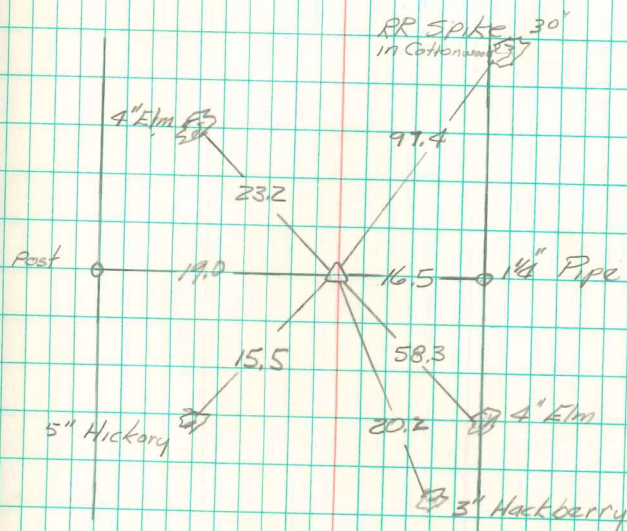 RR Spike 30"
in Cottonwood
4" Elm
97.4
23.2
Post
19.0
16.5
1¼" Pipe
15.5
58.3
5" Hickory
20.2
4" Elm
3" Hackberry